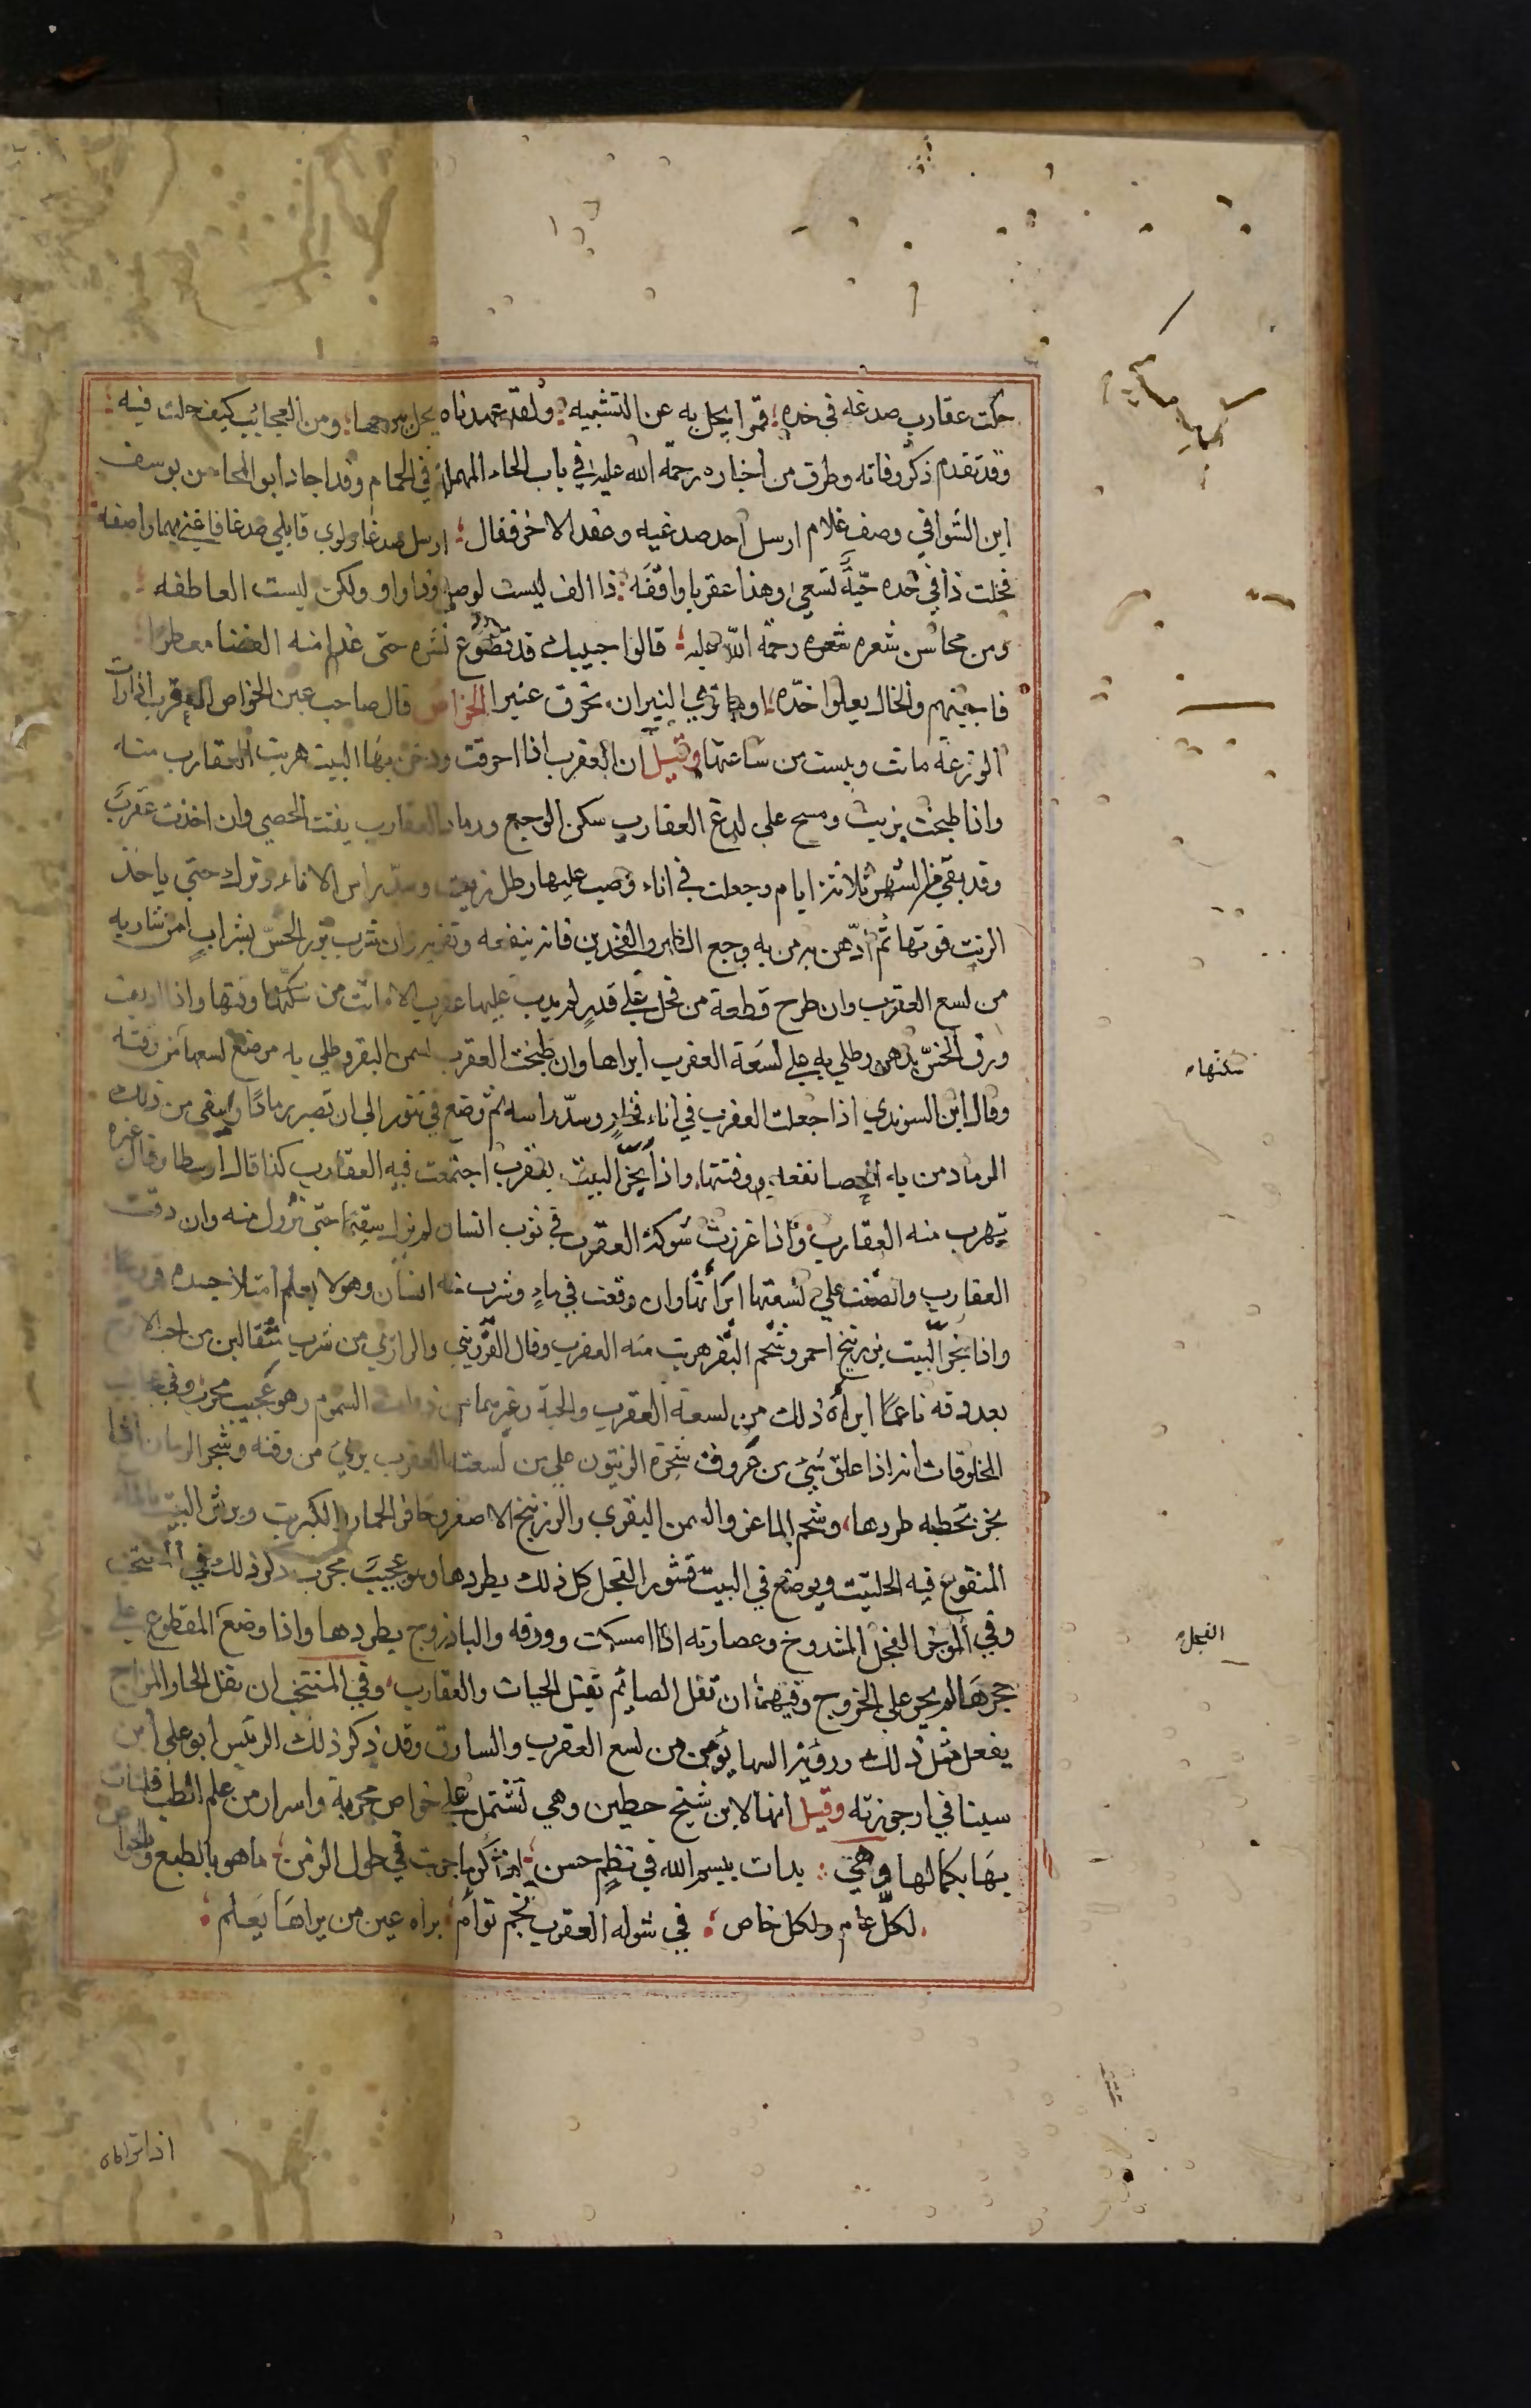 حلت عقارب صدغه في خده؛ قمرا يجل به عن التشبيه؛ ولقد عهدناه يحل ببرجها؛ ومن العجائب كيف حلت فيه؛
وقد تقدم ذكر وفاته وطرف من اخباره رحمة الله عليه في باب الحاء المهملة في الحمام وقد اجاد ابو المحاسن يوسف
ابن الشوا في وصف غلام ارسل احد صدغيه وعقد الاخر فقال؛ ارسل صدغا ولوي قاتلي صدغا فاعيي بهما واصفه
فخلت ذا في خده حيّة تسعي وهذا عقربا واقفه؛ ذا الف ليست لوصل وذا واو ولكن ليست العاطفه
ومن محاسن شعره شعره رحمة اللّه عليه؛ قالوا حبيبك قد تضوع نشره حتى غدا منه الفضا معطرا
فاجبتهم والخال يعلوا خدّه؛ اوما تري النيران تحرق عنبرا الخواص قال صاحب عين الخواص العقرب اذا رات
الوزغة ماتت ويبست من ساعتها وقيل ان العقرب اذا احرقت ودخن بها البيت هربت العقارب منه
واذا طبخت بزيت ومسح علي لدغ العقارب سكن الوجع ورماد العقارب يفتت الحصي وان اخذت عقرب
وقد بقي من الشهر ثلاثة ايام وجعلت في اناء وصب عليها رطل زيت وسدّ راس الاناء وترك حتي ياخذ
الزيت قوتها ثم ادّهن به من به وجع الظهر والفخدين فانه ينفعه وتقويه وان شرب بزر الخسّ بشراب امن شاربه
من لسع العقرب وان طرح قطعة من فجل علي قدر لم يدب عليها عقرب الا ماتت من سكتها وقتها واذا
ورق الخسّ بدهن وطلي به علي لسعة العقرب ابراها وان طبخت العقرب بسمن البقر وطلي به موضع لسعها من وقته
وقال ابن السويدي اذا جعلت العقرب في اناء فخار وسدّ راسه ثم وضع في تنور الى ان تصير رمادا وسقي من ذلك
الرماد من به الحصا نفعه وفتتها واذا بخّر البيت بعقرب اجتمعت فيه العقارب كذا قال ارسطا وقال غيره
تهرب منه العقارب واذا غرزت شوكة العقرب في ثوب انسان لم يزل سقيما حتى تزول منه وان دقت
العقارب والصقت علي لسعتها ابراتها وان وقعت في ماء وشرب منه انسان وهو لا يعلم امتلا جسده
واذا بخّر البيت بزرنيخ احمر وشحم البقر هربت منه العقرب وقال القزويني والرازي من شرب مثقالين من حب الاترج
بعد دقه ناعما ابراه ذلك من لسعة العقرب والحية وغيرهما من ذوات السموم وهو عجيب مجرب وفي عجايب
المخلوقات انه اذا علق شي من عروق شجرة الزيتون علي من لسعته العقرب بري من وقته وشجر الرمان اذا
بخر بحطبه طردها؛ وشحم الماعز والسمن البقري والزرنيخ الاصفر وحافر الحمار والكبريت ويرش البيت بالماء
المنقوع فيه الحلتيت ويوضع في البيت قشور الفجل كل ذلك يطردها وهو عجيب مجرب ذكر ذلك في المنتخب
وفي الموجز الفجل المشدوخ وعصارته اذا امسكت وورقه والباذروج يطردها واذا وضع المقطوع علي
جحرها لم يجر علي الخروج وفيهما ان تفل الصايم يقتل الحيات والعقارب وفي المنتخب ان تفل الحار المزاج
يفعل مثل ذلك ورؤية السها يؤمن من لسع العقرب والسارق وقد ذكر ذلك الرئيس ابو علي ابن
سينا في ارجوزته وقيل انها لابن شيخ حطين وهي تشتمل علي خواص مجربة واسرار من علم الطب فلنات
بها بكمالها وهي؛ بدات بسم الله في نظم حسن؛ اذكر ما جربت في طول الزمن؛ ما هو بالطبع وبالخواص
لكل عام ولكل خاص؛ في شوله العقرب نجم توأم؛ يراه عين من يراها يعلم؛
سكتها
الفجل
اذا تراه